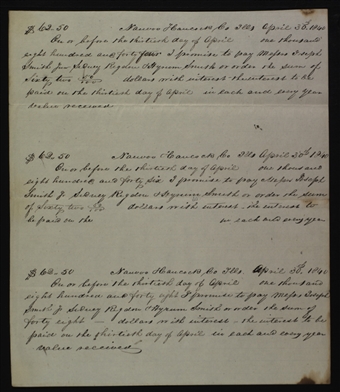 $62.50 Nauvoo Hancock Co Ills April 30th 1840
On or before the thirtieth day of April one thousand
eight hundred and forty four I promise to pay Messrs Joseph
Smith Jun Sidney Rigdon & Hyrum Smith or order the sum of
Sixty two 50/100 dollars with interest the interest to be
paid on the thirtieth day of April in each and every year
value received
$62.50 Nauvoo Hancock Co Ills April 30th 1840
On or before the thirtieth day of April one thousand
eight hundred and forty six I promise to pay Messrs Joseph
Smith Jr Sidney Rigdon & Hyrum Smith or order the sum
of Sixty two 50/100 dollars with interest, the interest to
be paid on the in each and every year
$62.50 Nauvoo Hancock Co Ills. April 30th 1840
On or before the thirtieth day of April one thousand
eight hundred and forty eight I promise to pay Messrs Joseph
Smith Jr Sidney Rigdon & Hyrum Smith or order the sum of
forty eight — dollars with interest — the interest to be
paid on the thirtieth day of April in each and every year
value received